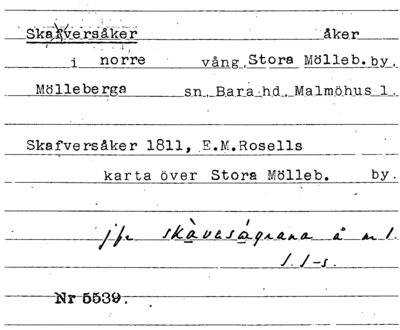 Skafversåker åker
i norre vång Stora Mölleb. by.
Mölleberga sn. Bara hd. Malmöhus l.
Skafversåker 1811, E.M.Rosells
karta över Stora Mölleb. by.
jfr skàvaságrana å m l.
l. l-s.
Nr 5539.